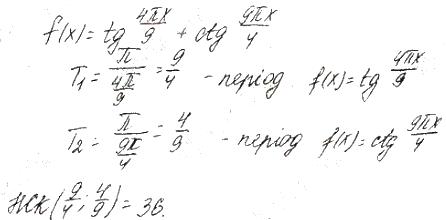 f(x) = tg 4πx/9 + ctg 9πx/4
T₁ = π/(4π/9) = 9/4 - період f(x) = tg 4πx/9
T₂ = π/(9π/4) = 4/9 - період f(x) = ctg 9πx/4
НСК (9/4; 4/9) = 36.